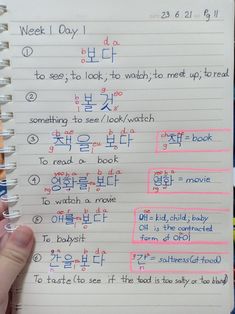 23.6.21 Pg 11
Week 1 Day 1
① 보다
to see; to look; to watch; to meet up; to read
② 볼 것
something to see/look/watch
③ 책을 보다
책 = book
To read a book
④ 영화를 보다
영화 = movie
To watch a movie
⑤ 애를 보다
애 = kid, child, baby
애 is the contracted
form of 아이
To babysit
⑥ 간을 보다
간 = saltiness (of food)
To taste (to see if the food is too salty or too bland)